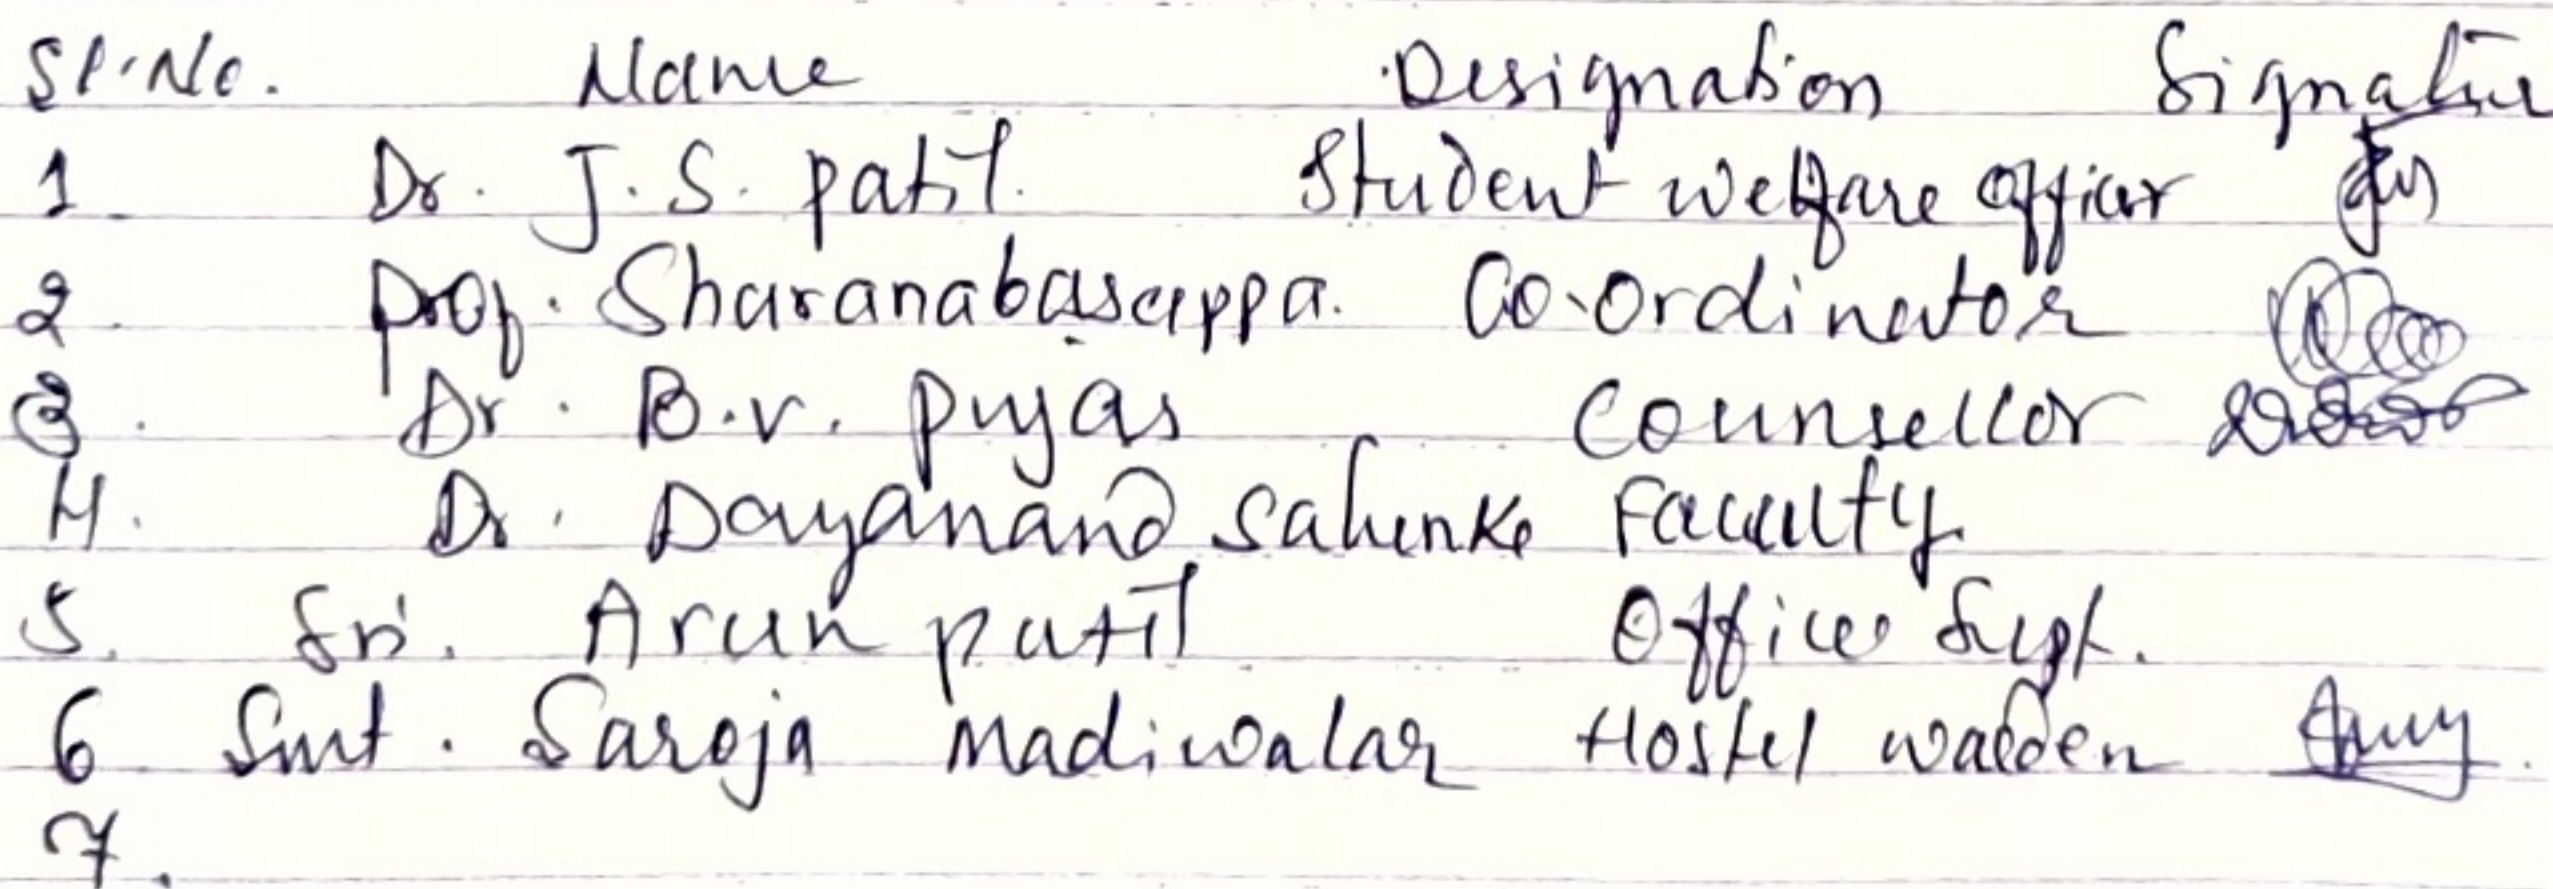 Sl.No. Name Designation Signature
1 Dr. J.S. patil. Student welfare officer
2. prof. Sharanabasappa. Co-ordinator
3. Dr. B.v. pujar Counsellor
4. Dr. Dayanand Faculty
5. Sri. Arun patil Office Supt.
6 Smt. Saroja Madiwalar Hostel warden
7.